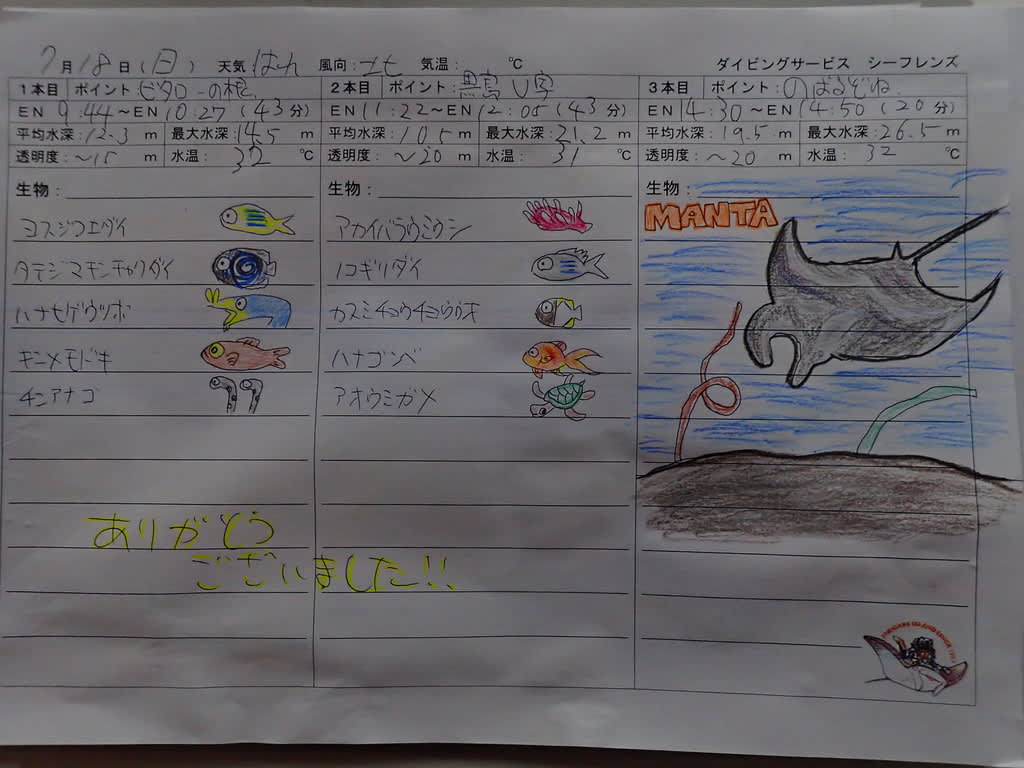 7月18日(日) 天気 はれ 風向:北 気温: ℃ ダイビングサービス シーフレンズ
1本目 ポイント:ビタローの根 2本目 ポイント:黒島V字 3本目 ポイント:のばるぞね
EN 9:44～EN 10:27 (43分) EN 11:22～EN 12:05 (43分) EN 14:30～EN 14:50 (20分)
平均水深:12.3 m 最大水深:14.5 m 平均水深:10.5 m 最大水深:21.2 m 平均水深:19.5 m 最大水深:26.5 m
透明度:～15 m 水温:32 ℃ 透明度:～20 m 水温:31 ℃ 透明度:～20 m 水温:32 ℃
生物: 生物: 生物:
MANTA
ヨスジフエダイ アカイバラウミウシ
タテジマキンチャクダイ ノコギリダイ
ハナヒゲウツボ カスミチョウチョウウオ
キンメモドキ ハナゴンベ
チンアナゴ アオウミガメ
ありがとう
ございました!!